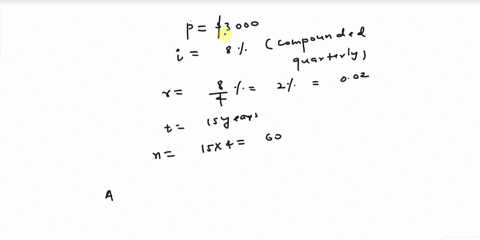 p = $3000
i = 8% (compounded quarterly)
r = 8/4 % = 2% = 0.02
t = 15 years
n = 15 x 4 = 60
A